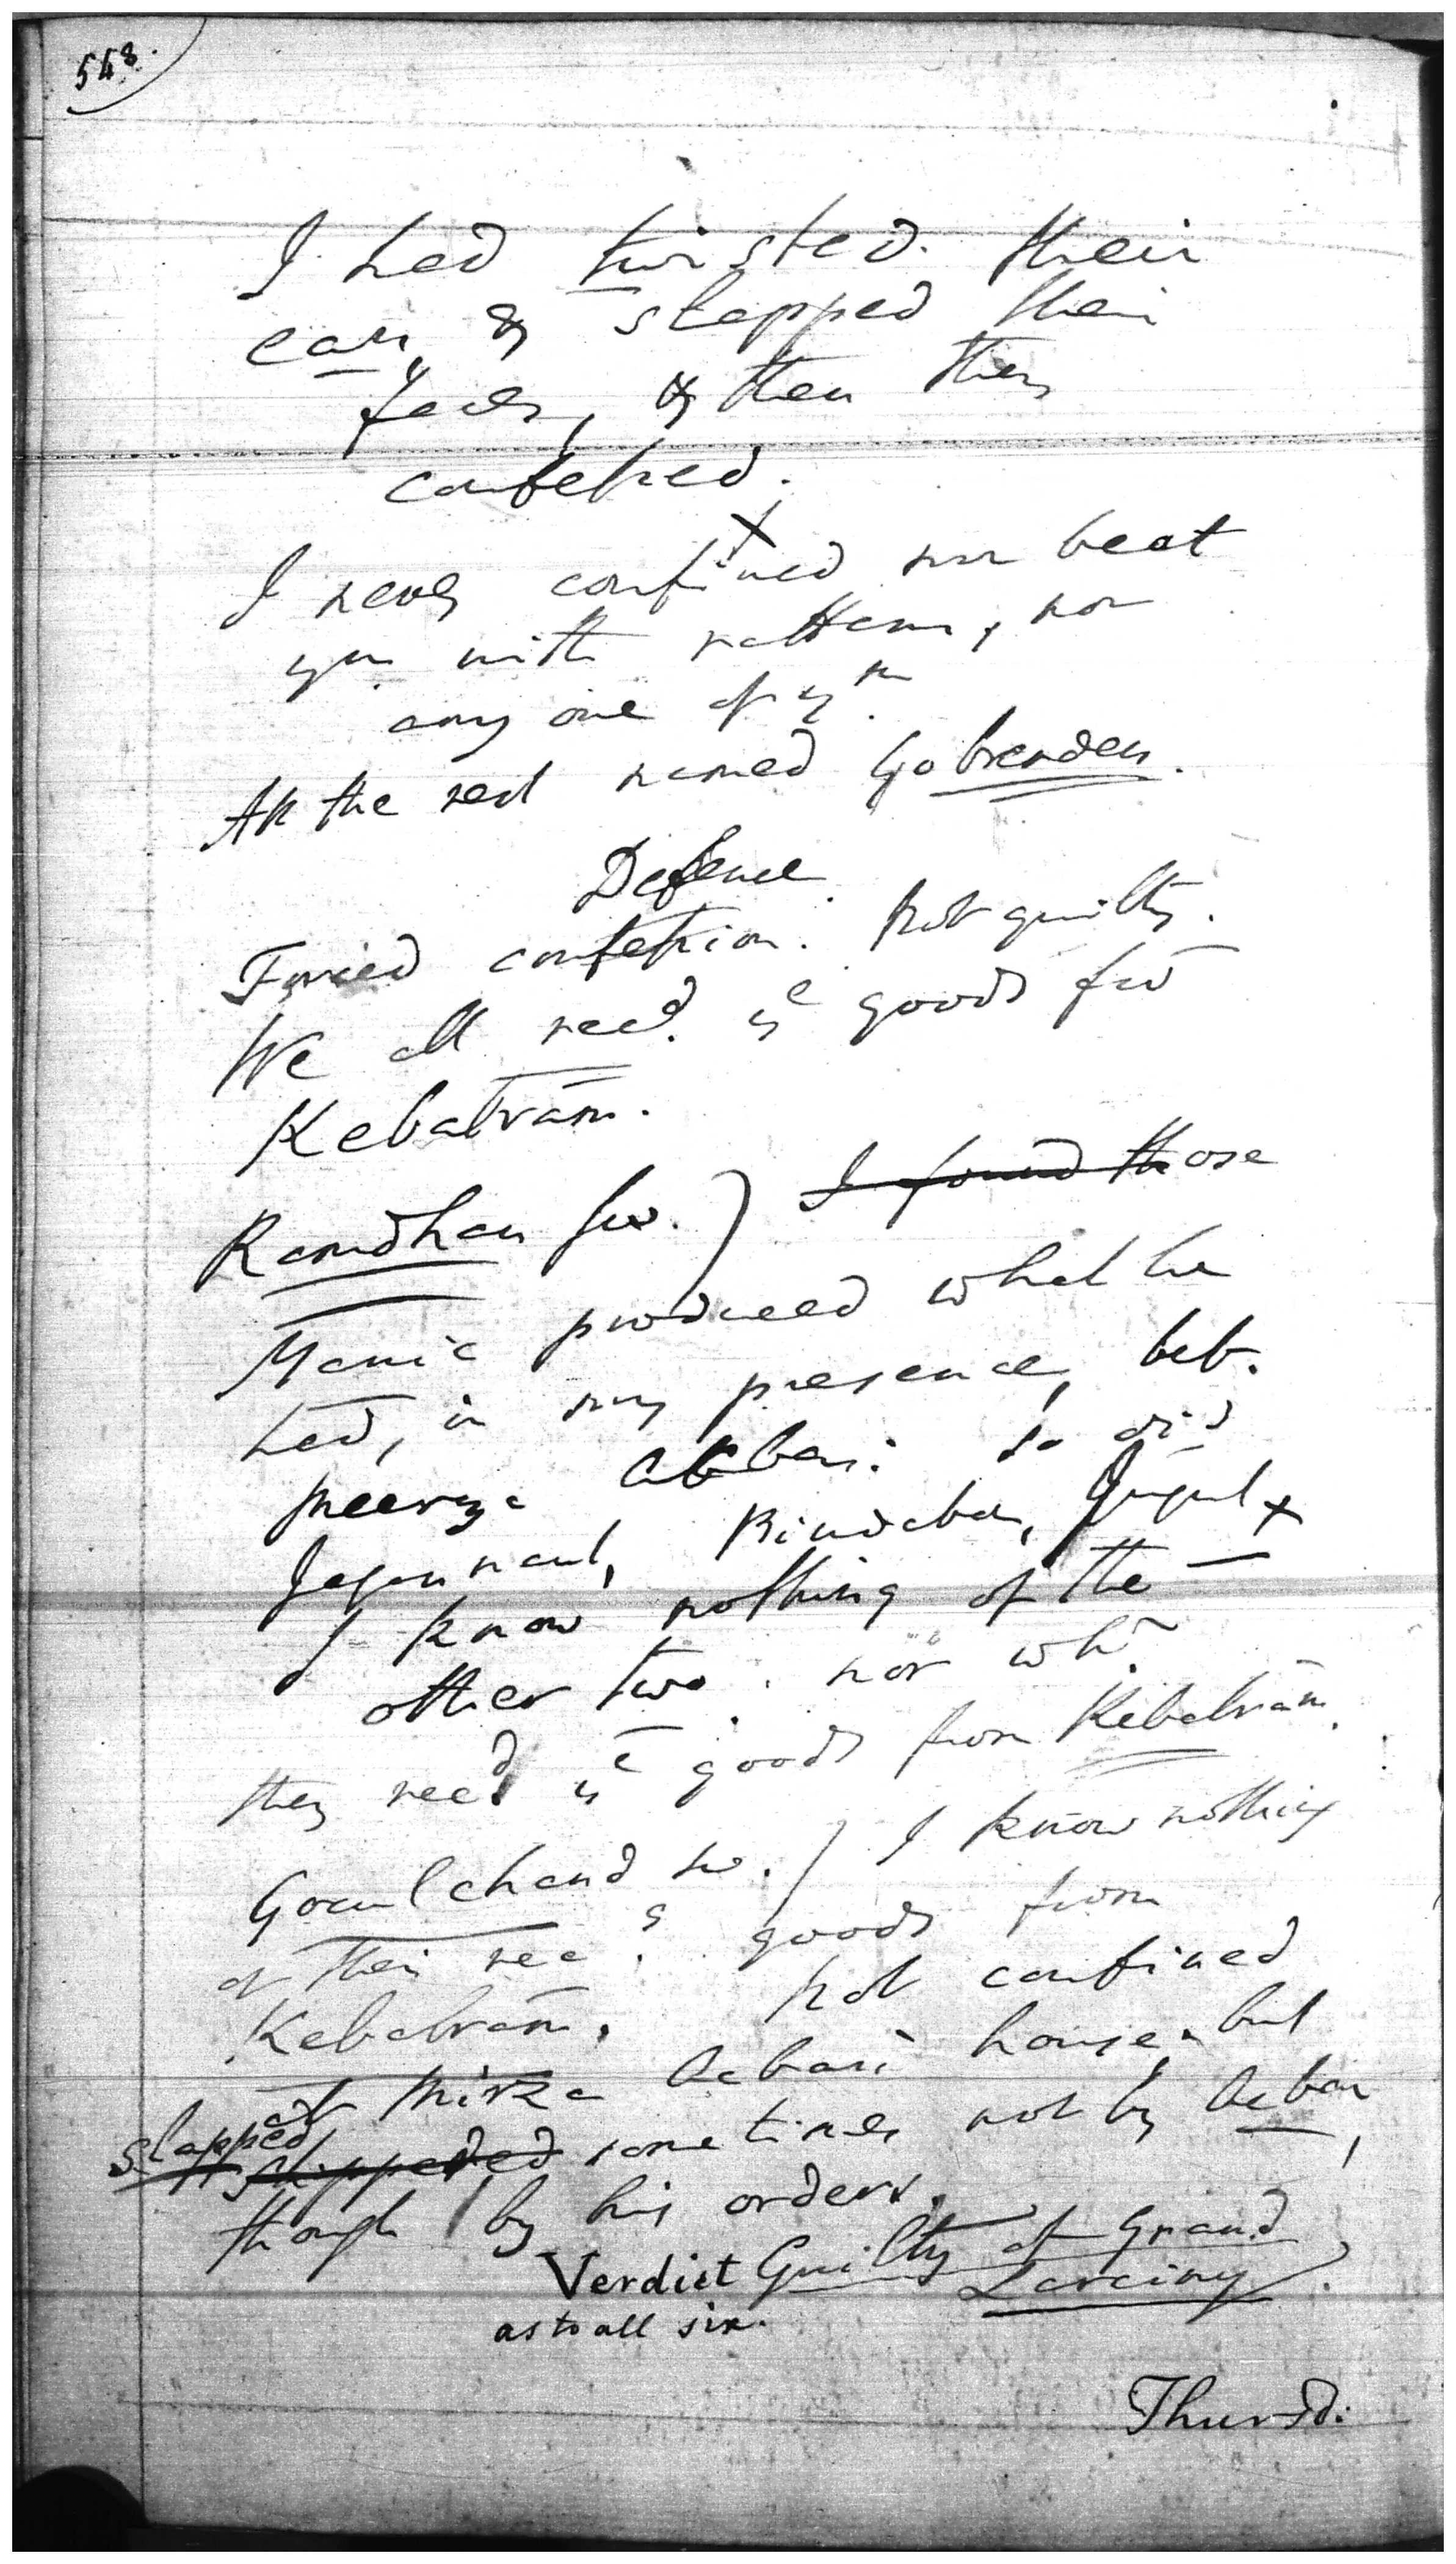 548.
I had twisted their
ears, & slapped their
faces, & then they
confessed.
I never confined nor beat
you with rattans, nor
any one of ym.
All the rest named
Defence.
Forced confession. Not guilty.
We all recd. ye goods fro
Kebalram.
Ramdhan sw. ) I found those
Manic produced what he
had, in my presence, bef.
Meerza Akbar: so did
Jagannaut, Bindaban, Jugul x
I know nothing of the
other two. nor whr.
they recd ye goods from Kebalram.
Gocul chand sw. ) I know nothing
of their recg. goods from
Kebalram. Not confined
at Mirza Acbari house, but
slapped sometimes not by Acbar,
though by his orders.
Verdict Guilty of Grand
Larciny.
as to all six.
Thursd: